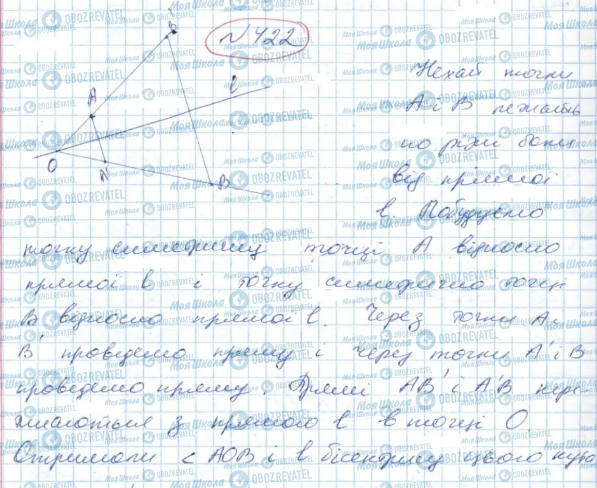 №422
B'
A
l
O
N
B
Нехай точки
А і В лежать
по різні боки
від прямої
l. Побудуємо
точку симетричну точці А відносно
прямої l і точку симетрично точці
В відносно прямої l. Через точки А і
В' проведемо пряму і через точки А' і В
проведемо пряму. Прямі АВ' і А'В пере-
тинаються з прямою l в точці О
Отримали < АОВ і l бісектрису цього кута
Моя Школа
OBOZREVATEL